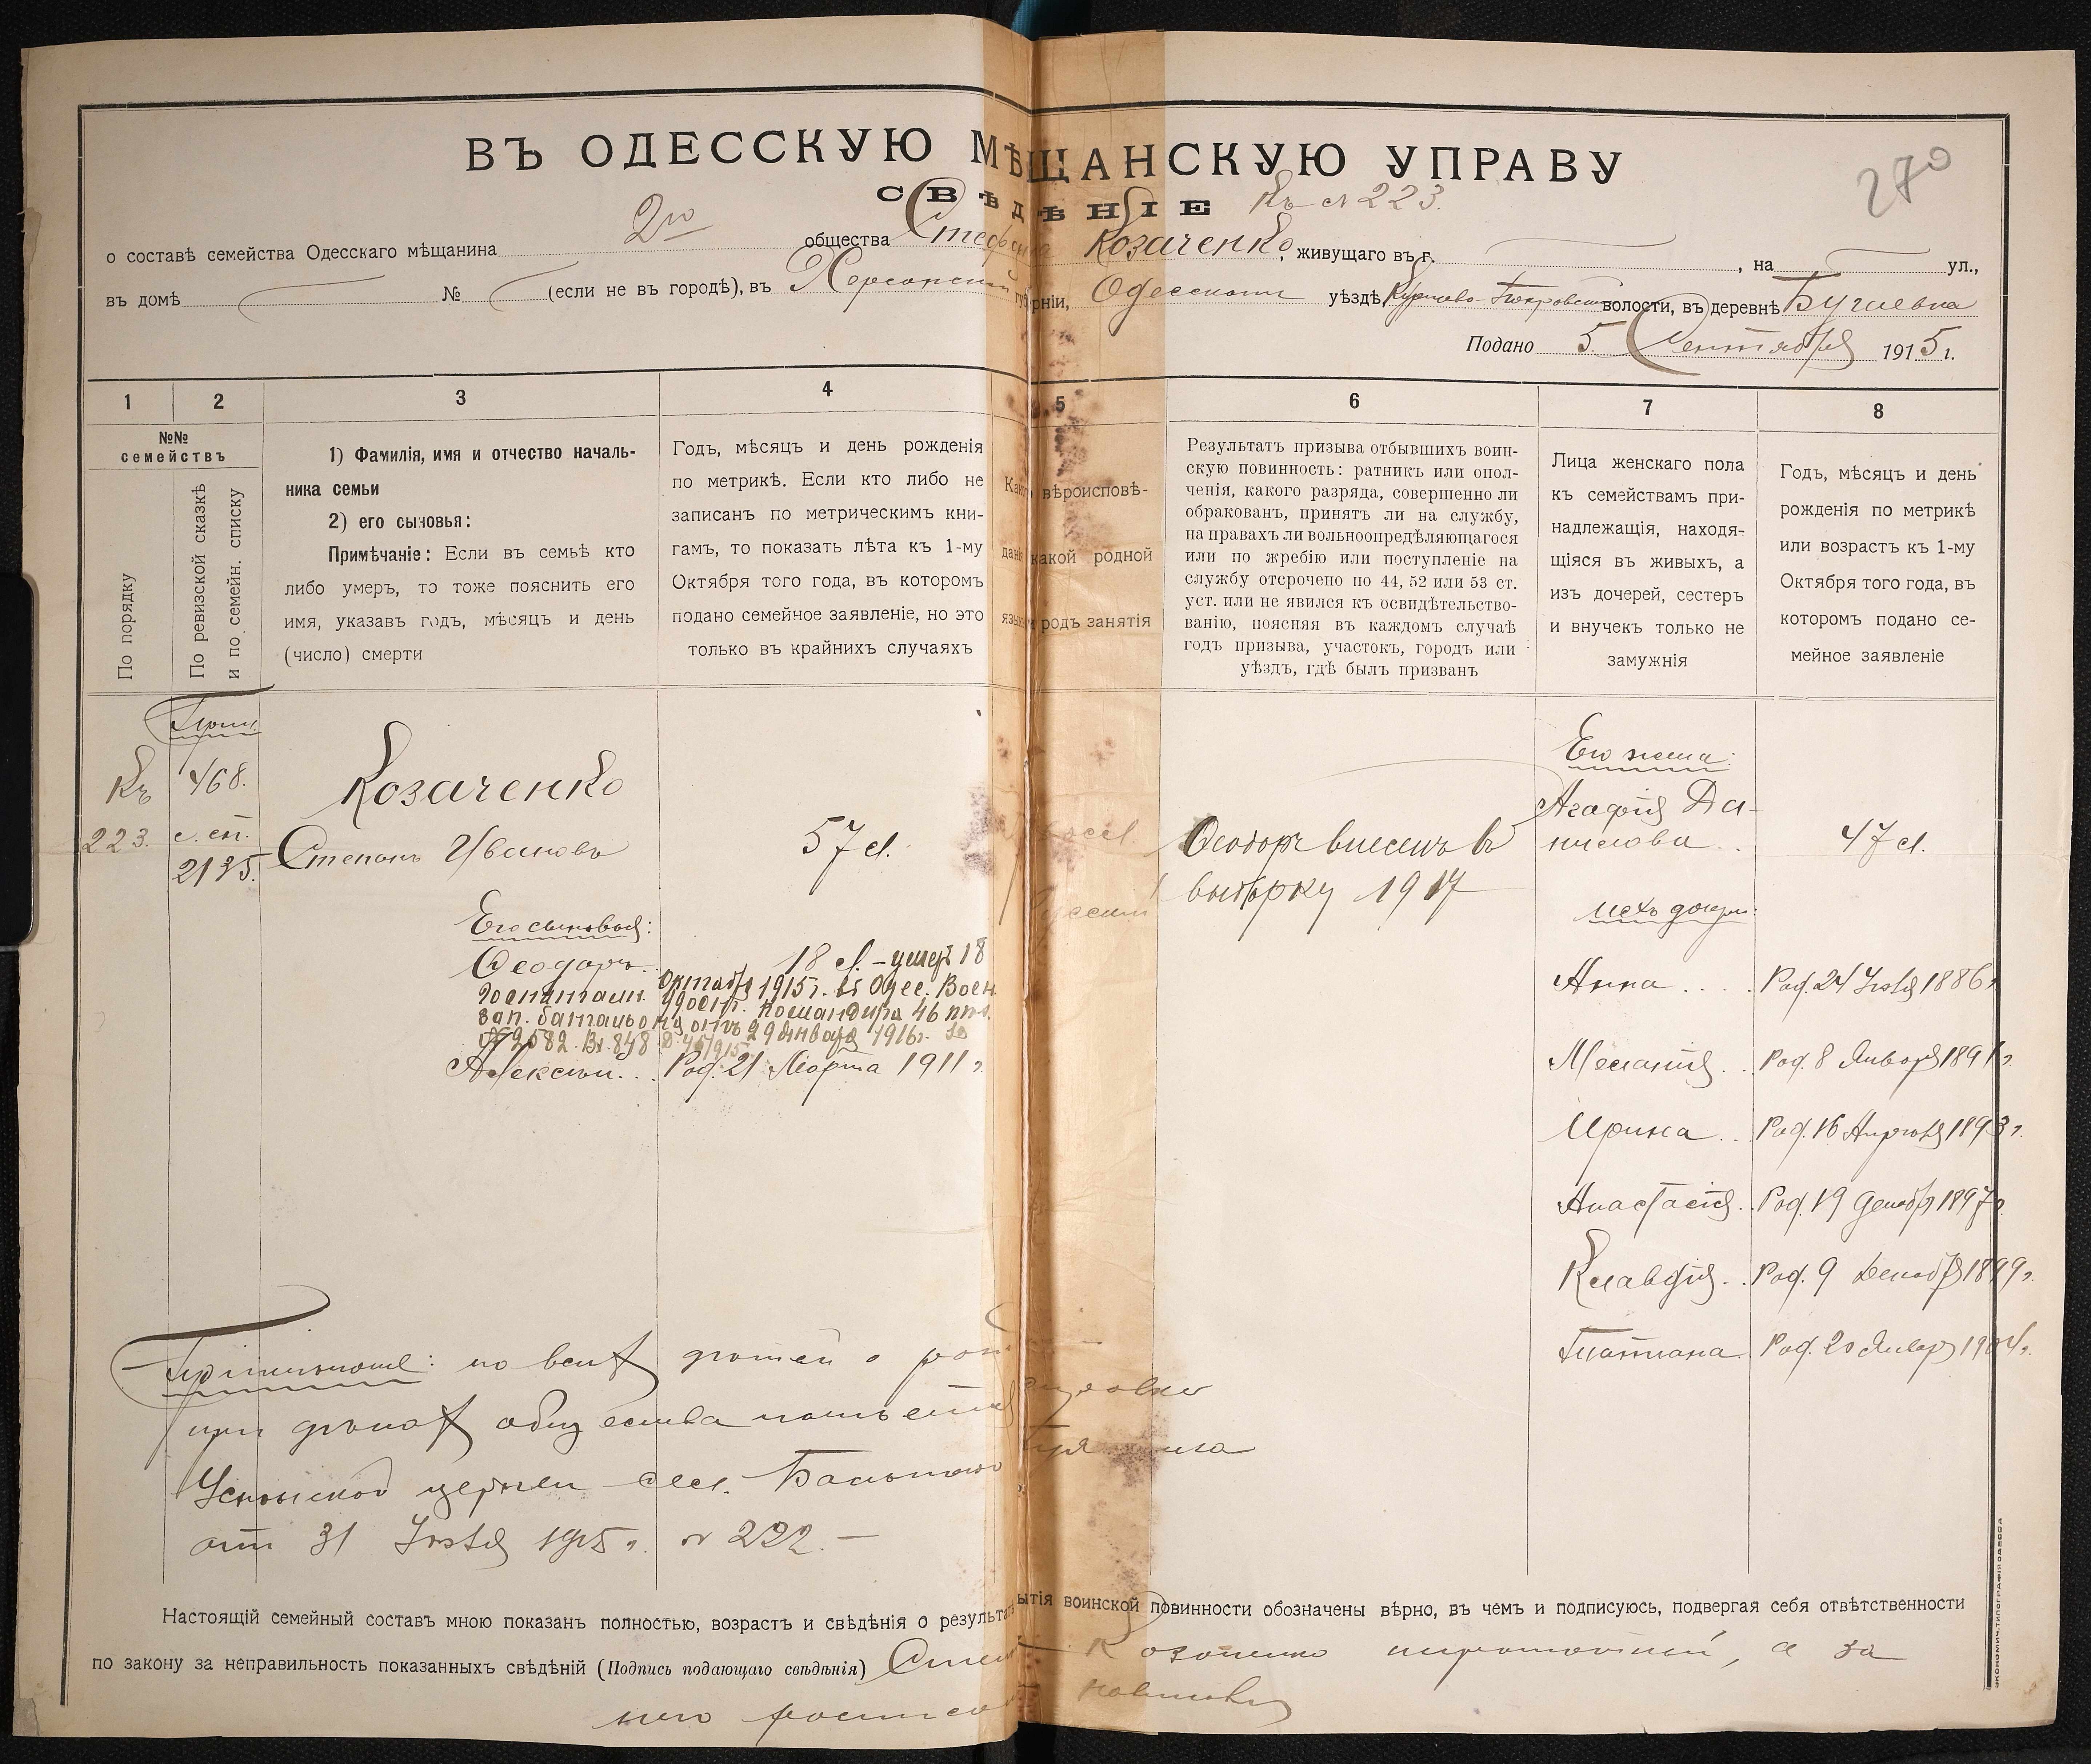 ВЪ ОДЕССКУЮ МѢЩАНСКУЮ УПРАВУ
270
СВѢДѢНІЕ Къ № 223.
о составѣ семейства Одесскаго мѣщанина 2го общества Стефана Козаченко, живущаго въ г. , на ул.,
въ домѣ № (если не въ городѣ), въ Херсонской губерніи, Одесскомъ уѣздѣ, Покровской волости, въ деревнѣ
Подано 5 Сентября 1915 г.
1 2 3 4 5 6 7 8
№№ семействъ
По порядку
По ревизской сказкѣ
и по семейн. списку
1) Фамилія, имя и отчество началь-
ника семьи
2) его сыновья:
Примѣчаніе: Если въ семьѣ кто
либо умеръ, то тоже пояснить его
имя, указавъ годъ, мѣсяцъ и день
(число) смерти
Годъ, мѣсяцъ и день рожденія
по метрикѣ. Если кто либо не
записанъ по метрическимъ кни-
гамъ, то показать лѣта къ 1-му
Октября того года, въ которомъ
подано семейное заявленіе, но это
только въ крайнихъ случаяхъ
вѣроисповѣ-
какой родной
родъ занятія
Результатъ призыва отбывшихъ воин-
скую повинность: ратникъ или опол-
ченія, какого разряда, совершенно ли
обракованъ, принятъ ли на службу,
на правахъ ли вольноопредѣляющагося
или по жребію или поступленіе на
службу отсрочено по 44, 52 или 53 ст.
уст. или не явился къ освидѣтельство-
ванію, поясняя въ каждомъ случаѣ
годъ призыва, участокъ, городъ или
уѣздъ, гдѣ былъ призванъ
Лица женскаго пола
къ семействамъ при-
надлежащія, находя-
щіяся въ живыхъ, а
изъ дочерей, сестеръ
и внучекъ только не
замужнія
Годъ, мѣсяцъ и день
рожденія по метрикѣ
или возрастъ къ 1-му
Октября того года, въ
которомъ подано се-
мейное заявленіе
Къ
223.
468.
с. сп.
2135.
Козаченко
Степанъ Ивановъ
57 л.
Феодоръ внесенъ въ
выборку 1917
Его жена:
Агафія Да-
нилова
47 л.
Его сыновья:
Феодоръ 18 л. – умеръ 18
Октября 1915 г. въ Одес. Воен.
госпитали. Удост. Командира 46 пѣх.
зап. баталіона отъ 29 января 1916 г. за
№ 2582. Вх. 848
Алексѣй Род. 21 Марта 1911 г.
ихъ дочери:
Анна Род. 24 Іюля 1886 г.
Меланія Род. 8 Января 1891 г.
Ирина Род. 16 Апрѣля 1893 г.
Анастасія Род. 19 Декабря 1897 г.
Клавдія Род. 9 Декабря 1899 г.
Татіана Род. 20 Января 1904 г.
Примѣчаніе: на всѣхъ дѣтей о
при дѣлахъ общества имѣется
Успенской церкви сел.
отъ 31 Іюля 1915 г. № 222. –
Настоящій семейный составъ мною показанъ полностью, возрастъ и свѣдѣнія о результатѣ отбытія воинской повинности обозначены вѣрно, въ чемъ и подписуюсь, подвергая себя отвѣтственности
по закону за неправильность показанныхъ свѣдѣній (Подпись подающаго свѣдѣнія) Степанъ Козаченко неграмотный, а за
него росписался
ЭКОНОМИЧ. ТИПОГРАФІЯ ОДЕССА